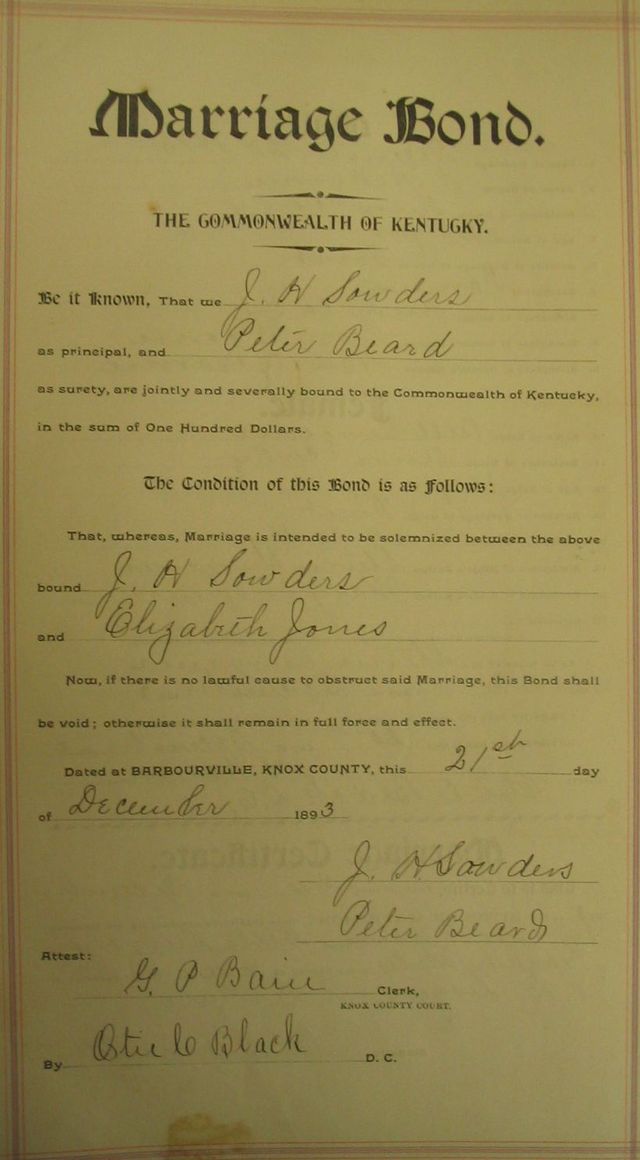 Marriage Bond.
THE COMMONWEALTH OF KENTUCKY.
Be it Known, That we J. H Sowders
as principal, and Peter Beard
as surety, are jointly and severally bound to the Commonwealth of Kentucky,
in the sum of One Hundred Dollars.
The Condition of this Bond is as Follows:
That, whereas, Marriage is intended to be solemnized between the above
bound J. H Sowders
and Elizabeth Jones
Now, if there is no lawful cause to obstruct said Marriage, this Bond shall
be void; otherwise it shall remain in full force and effect.
Dated at BARBOURVILLE, KNOX COUNTY, this 21st day
of December 1893
J. H. Sowders
Peter Beard
Attest:
G. P Bain Clerk,
KNOX COUNTY COURT.
By C Black D. C.